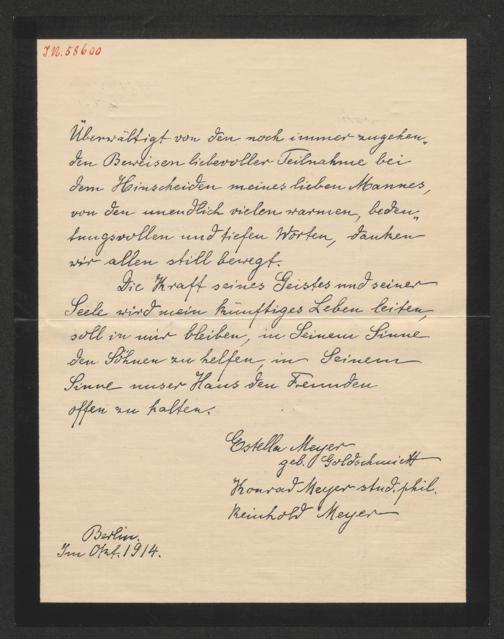 I.N. 58600
Überwältigt von den noch immer zugehen-
den Beweisen liebevoller Teilnahme bei
dem Hinscheiden meines lieben Mannes,
von den unendlich vielen warmen, bedeu-
tungsvollen und tiefen Worten, danken
wir allen still bewegt.
Die Kraft seines Geistes und seiner
Seele wird mein künftiges Leben leiten,
soll in mir bleiben, in Seinem Sinne
den Söhnen zu helfen, in Seinem
Sinne unser Haus den Freunden
offen zu halten.
Estella Meyer
geb. Goldschmidt
Konrad Meyer stud. phil.
Reinhold Meyer
Berlin.
Im Okt. 1914.